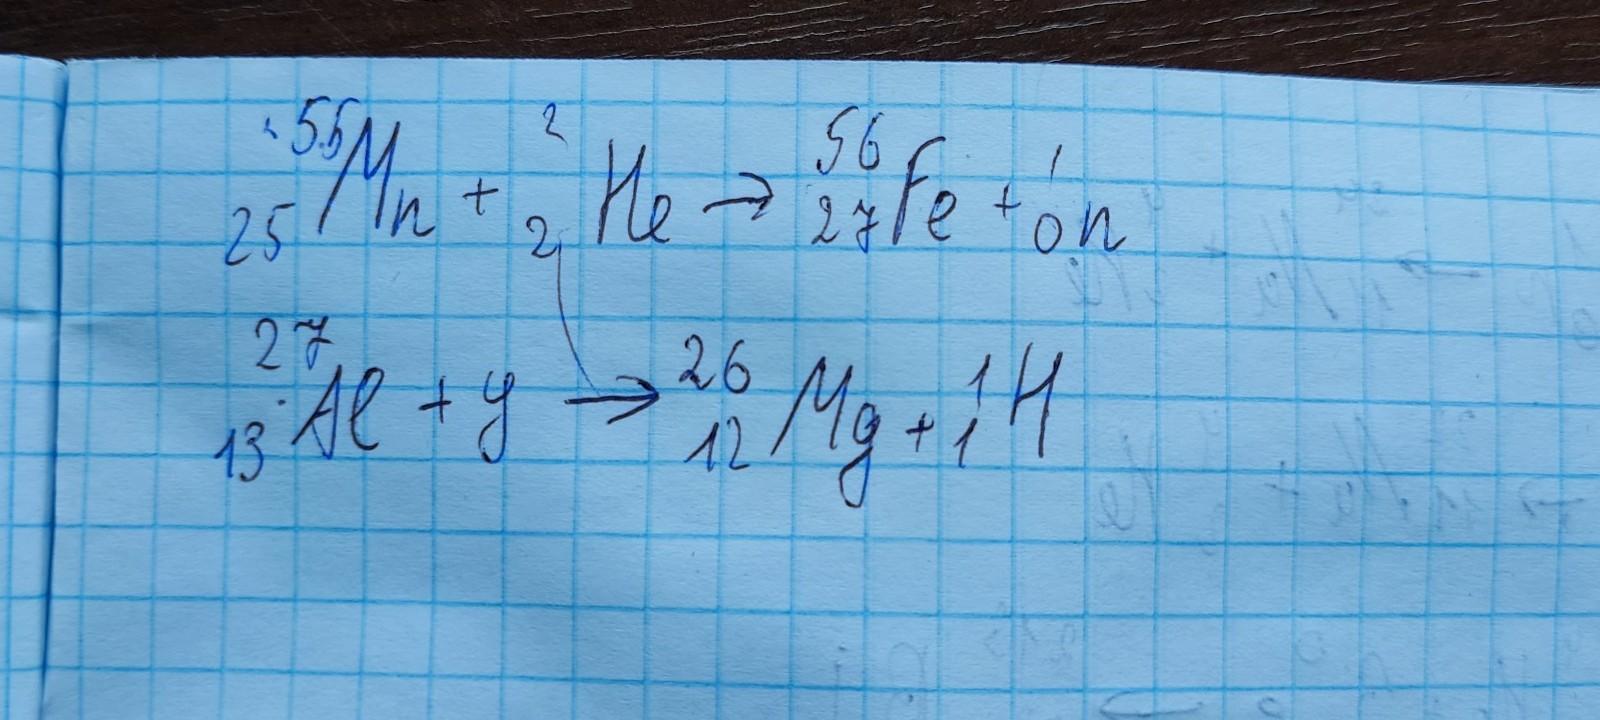 ⁵⁵₂₅Mn + ²₂He → ⁵⁶₂₇Fe + ¹₀n
²⁷₁₃Al + γ → ²⁶₁₂Mg + ¹₁H